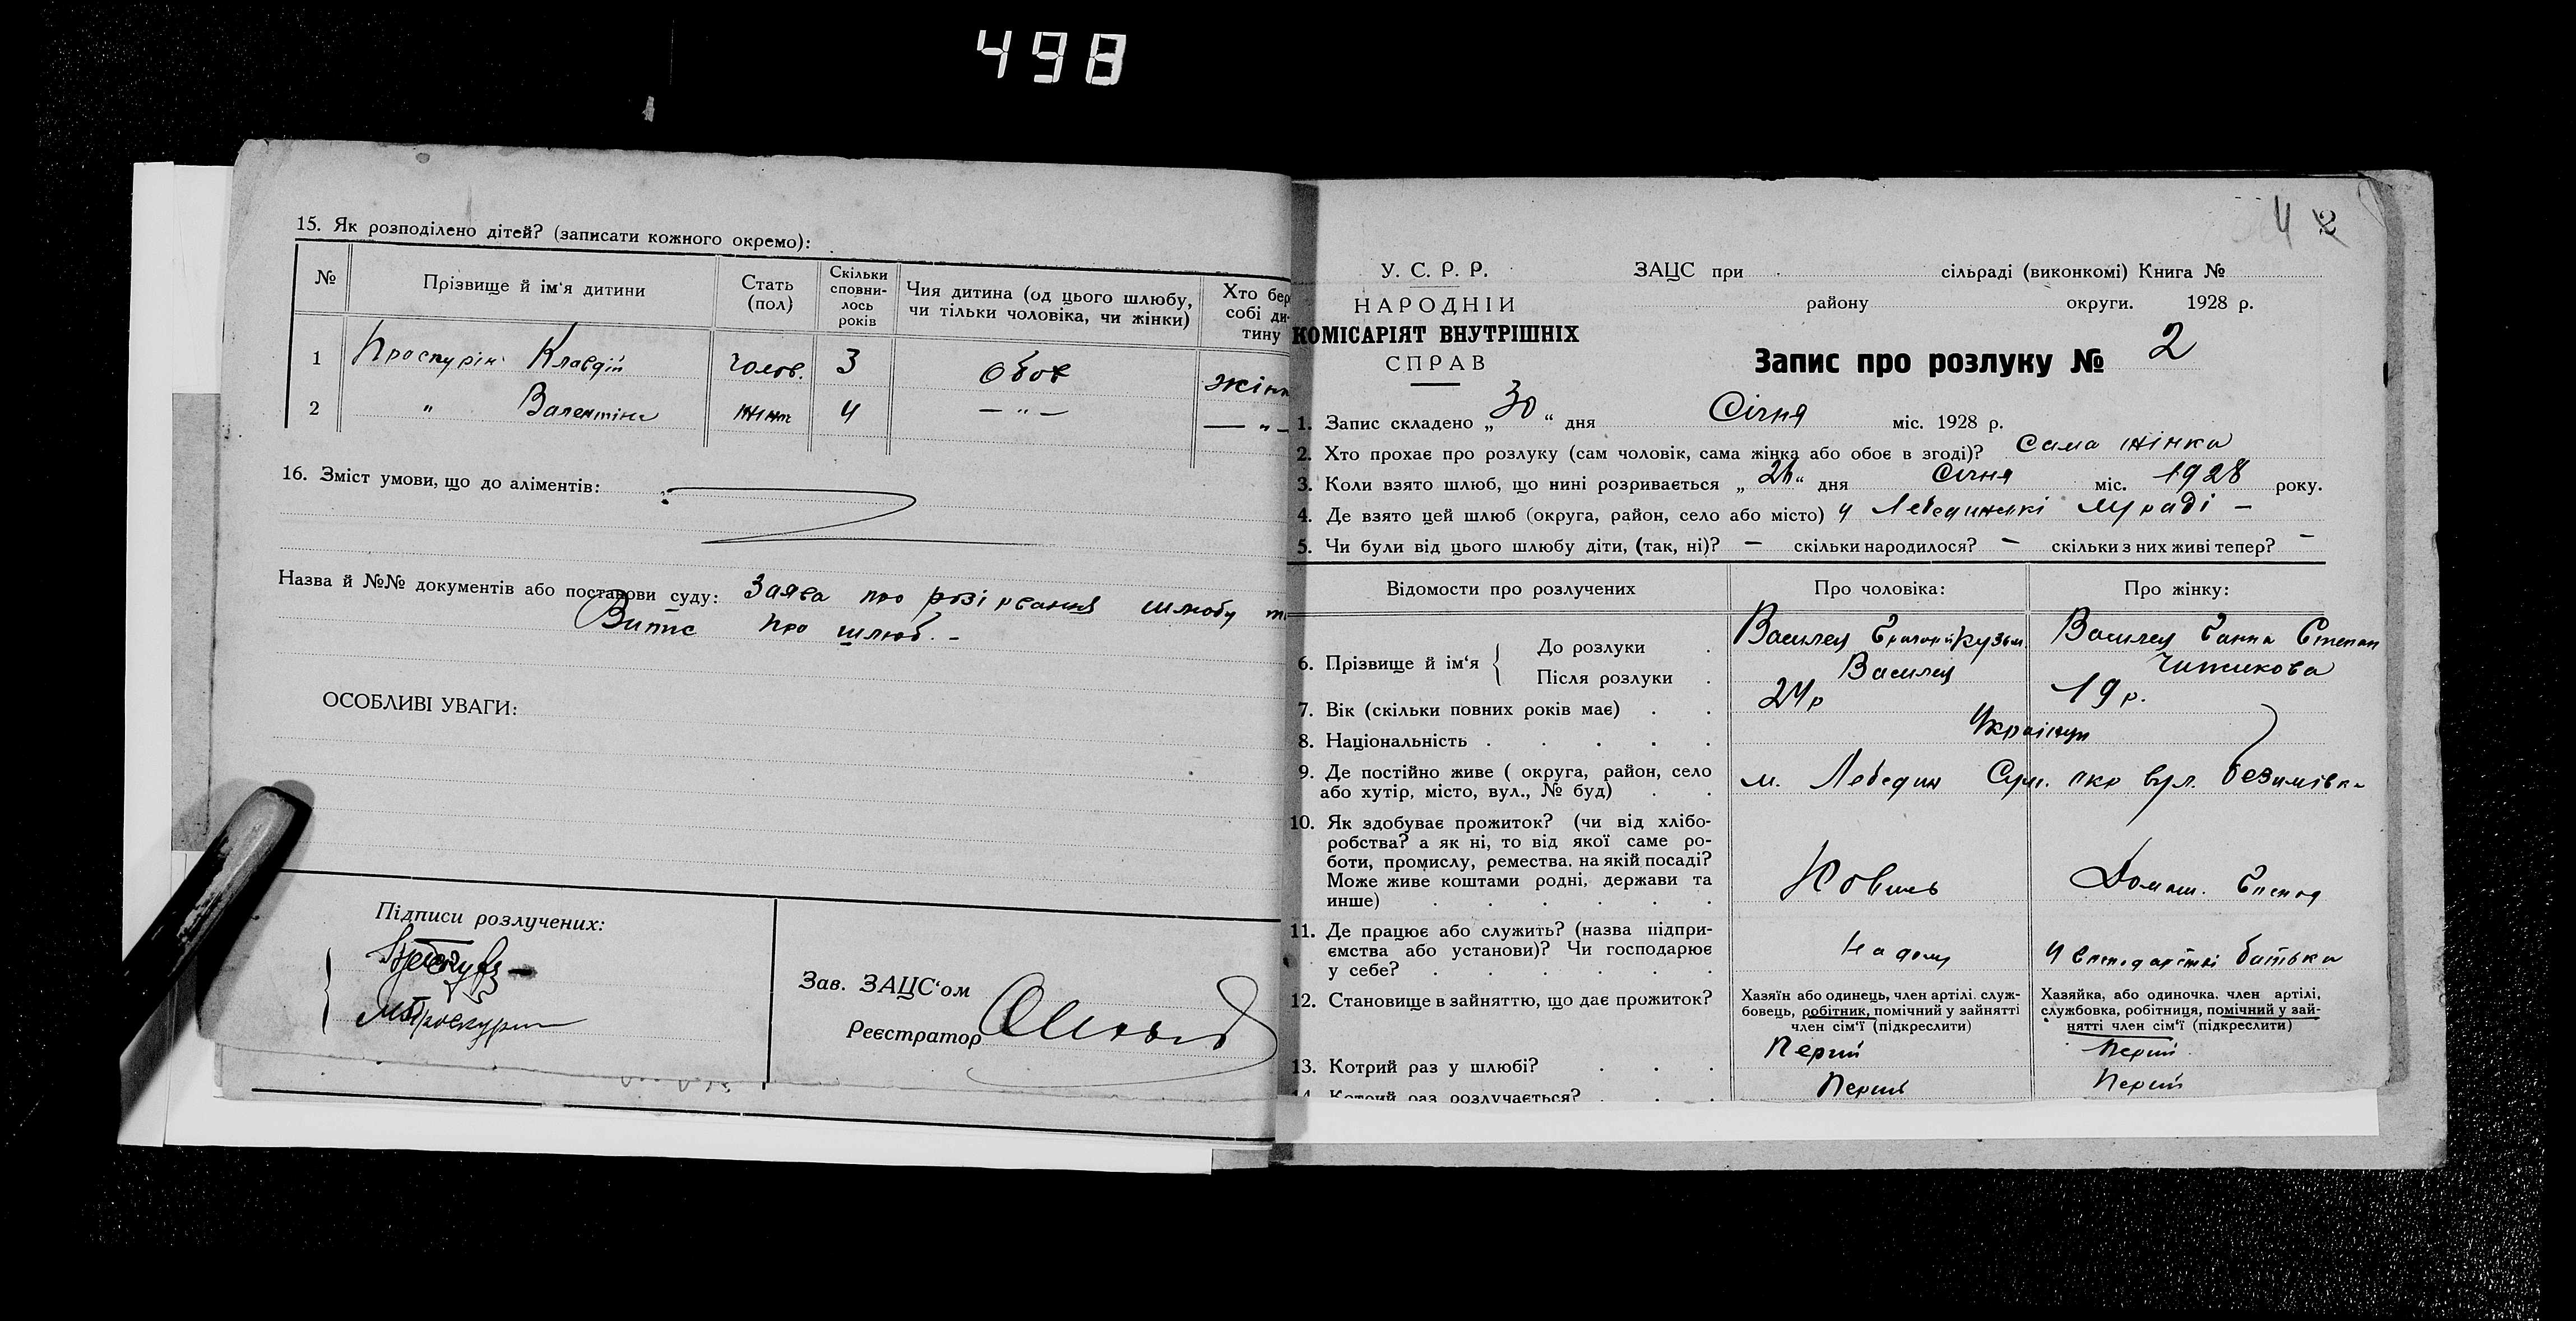 498
15. Як розподілено дітей? (записати кожного окремо):
№ Прізвище й ім'я дитини Стать (пол) Скільки сповнилось років Чия дитина (од цього шлюбу, чи тільки чоловіка, чи жінки) Хто бер собі ди- тину
1 Проскурін Клавдій чолов. 3 Обох жінк
2 " Валентіна жінт 4 — " — — " —
16. Зміст умови, що до аліментів:
Назва й №№ документів або постанови суду: Заява про розірвання шлюбу т
Випис про шлюб. -
ОСОБЛИВІ УВАГИ:
Підписи розлучених:
Зав. ЗАЦС'ом
Реєстратор
4 2
У. С. Р. Р.
НАРОДНІЙ
КОМІСАРІЯТ ВНУТРІШНІХ
СПРАВ
ЗАЦС при сільраді (виконкомі) Книга №
району округи. 1928 р.
Запис про розлуку № 2
1. Запис складено „30“ дня Січня міс. 1928 р.
2. Хто прохає про розлуку (сам чоловік, сама жінка або обоє в згоді)? Сама жінка
3. Коли взято шлюб, що нині розривається „ “ дня Січня міс. 1928 року.
4. Де взято цей шлюб (округа, район, село або місто) у Лебединскі —
5. Чи були від цього шлюбу діти, (так, ні)? — скільки народилося? — скільки з них живі тепер? —
Відомости про розлучених Про чоловіка: Про жінку:
6. Прізвище й ім'я { До розлуки . Василец Григорій Кузьм. Василец Ганна Степан
Після розлуки . Василец Чижикова
7. Вік (скільки повних років має) . . 24 р 19 р.
8. Національність . . . . . Українці
9. Де постійно живе ( округа, район, село
або хутір, місто, вул., № буд) . . м. Лебедин Сум. окр вул.
10. Як здобуває прожиток? (чи від хлібо-
робства? а як ні, то від якої саме ро-
боти, промислу, ремества. на якій посаді?
Може живе коштами родні, держави та
инше) . . . . . . Коваль Домаш. Господ
11. Де працює або служить? (назва підпри-
ємства або установи)? Чи господарює
у себе? . . . . . . На дому у господарстві батька
12. Становище в зайняттю, що дає прожиток?
Хазяїн або одинець, член артілі. служ-
бовець, робітник, помічний у зайнятті
член сім'ї (підкреслити)
Хазяйка, або одиночка. член артілі,
службовка, робітниця, помічний у зай-
нятті член сім'ї (підкреслити)
13. Котрий раз у шлюбі? . . . Перший Перший
14. Котрий раз розлучається? . . . Перший Перший